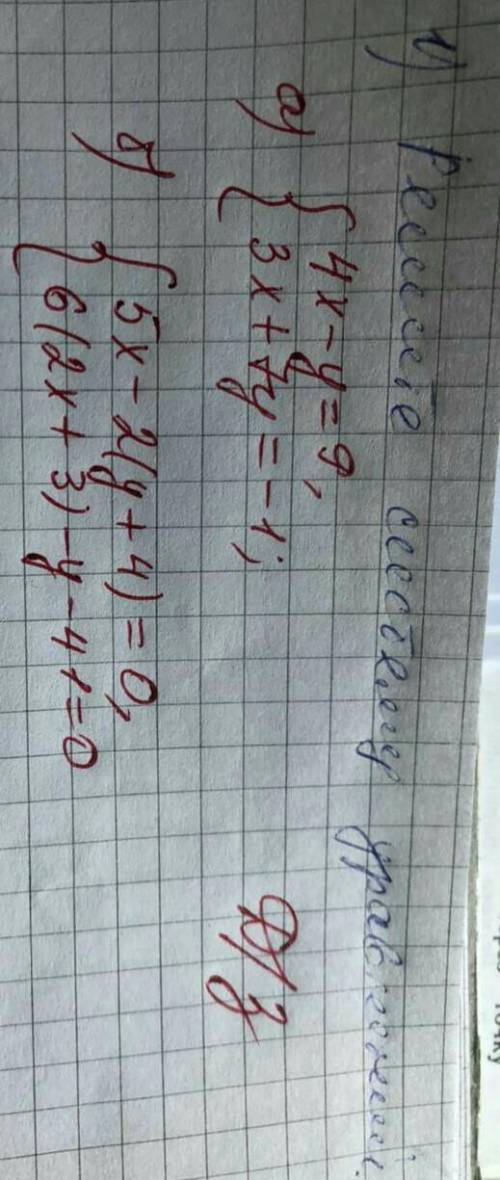 1) Решите систему уравнений.
а) { 4x - y = 9,
3x + 7y = -1;
Д/з
б) { 5x - 2(y + 4) = 0,
6(2x + 3) - y - 41 = 0